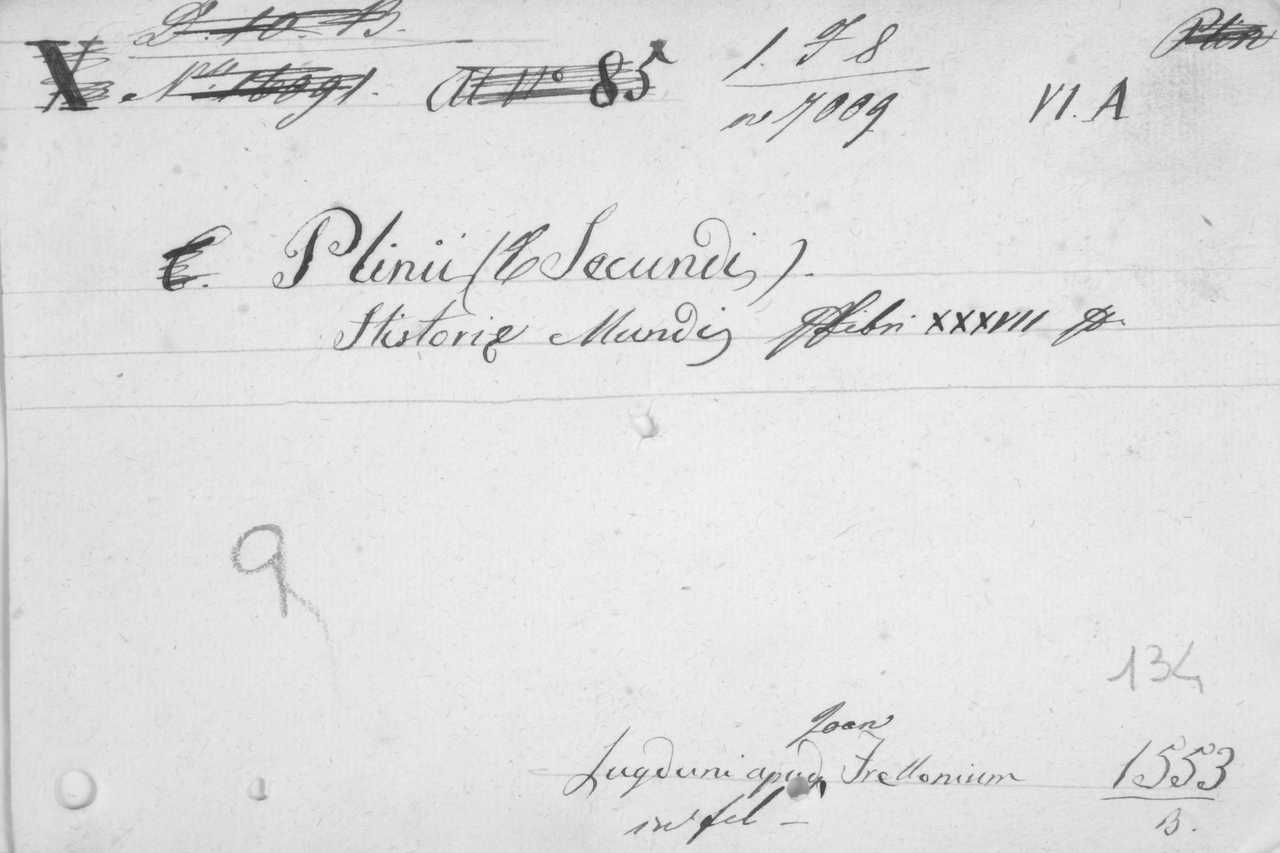 D. 10. B. 1. F 8 Plin
X N. 16091. At N° 85 n 7009 VI. A
C. Plinii (C Secundi).
Historiæ Mundi Libri XXXVII
9
134
Joan
Lugduni apud Frellonium 1553
in fol – B.